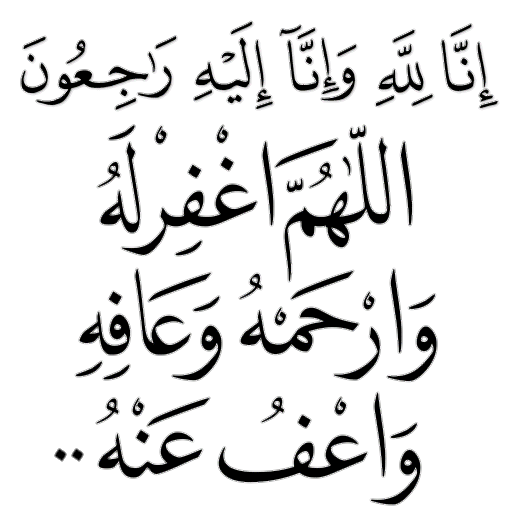 إِنَّا لِلَّهِ وَإِنَّآ إِلَيْهِ رَاجِعُونَ
اللَّهُمَّ اغْفِرْ لَهُ
وَارْحَمْهُ وَعَافِهِ
وَاعْفُ عَنْهُ..